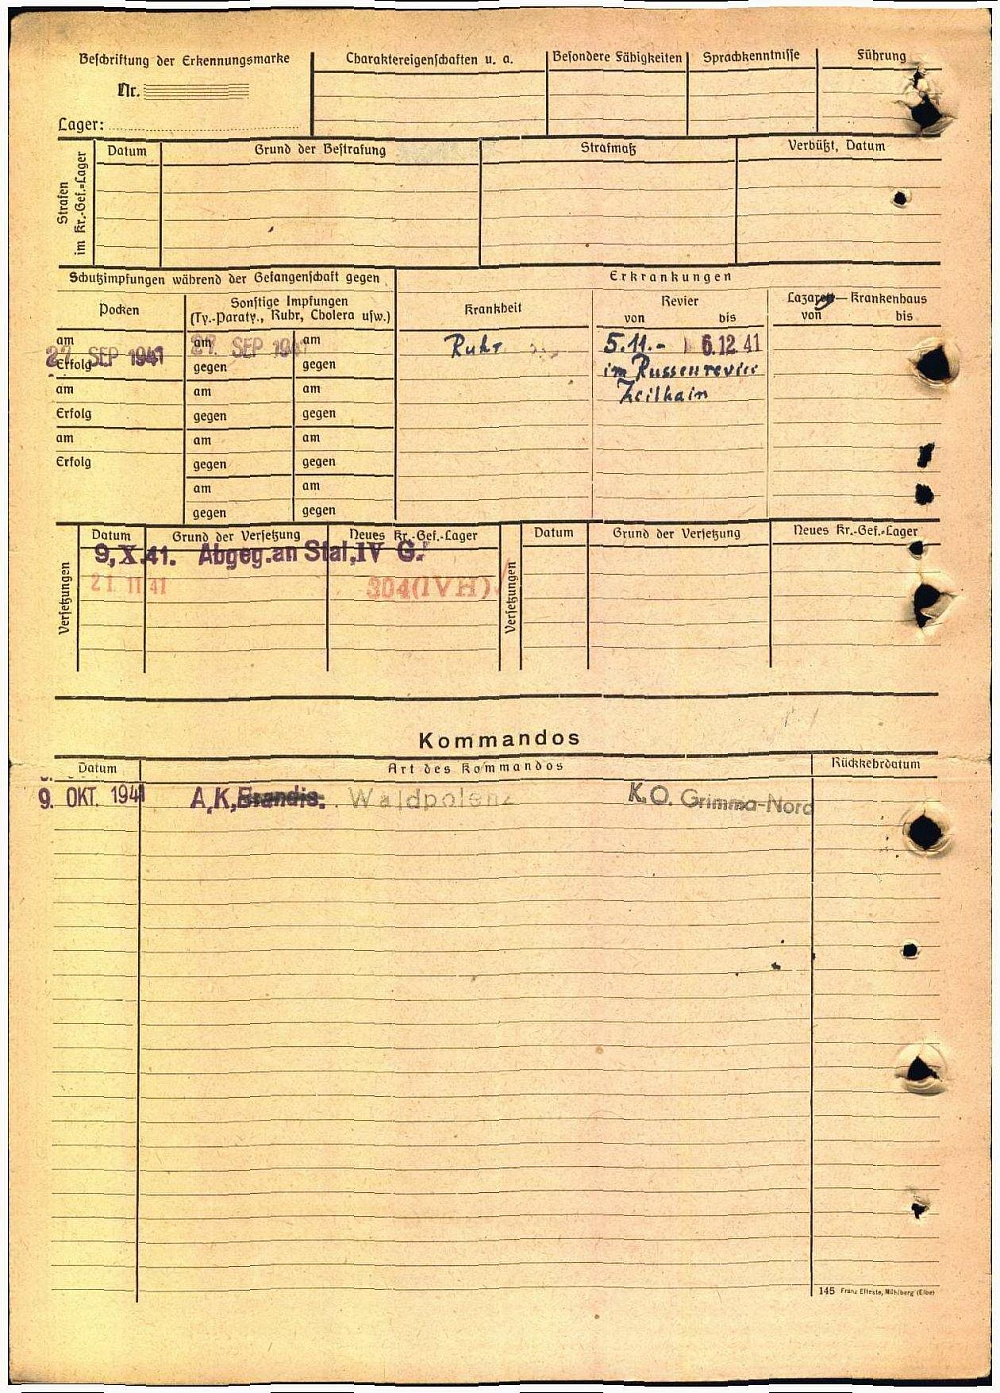 Beschriftung der Erkennungsmarke
Nr.
Lager:
Charaktereigenschaften u. a.
Besondere Fähigkeiten
Sprachkenntnisse
Führung
Strafen
im Kr.-Gef.-Lager
Datum
Grund der Bestrafung
Strafmaß
Verbüßt, Datum
Schutzimpfungen während der Gefangenschaft gegen
Erkrankungen
Pocken
Sonstige Impfungen
(Ty.-Paraty., Ruhr, Cholera usw.)
Krankheit
Revier
von bis
Lazarett—Krankenhaus
von bis
am am am
27. SEP 1941 27. SEP 1941
Erfolg gegen gegen
Ruhr
5.11.- 6.12 41
im Russenrevier
Zeilhain
am am am
Erfolg gegen gegen
am am am
Erfolg gegen gegen
am am
gegen gegen
Versetzungen
Datum Grund der Versetzung Neues Kr.-Gef.-Lager
9.X.41. Abgeg. an Stal, IV G.
21 11 41 304(IVH)
Versetzungen
Datum Grund der Versetzung Neues Kr.-Gef.-Lager
Kommandos
Datum Art des Kommandos Rückkehrdatum
9. OKT. 1941 A,K,Brandis. Waldpolenz K.O. Grimma-Nord
145 Franz Ellreste, Mühlberg (Elbe)